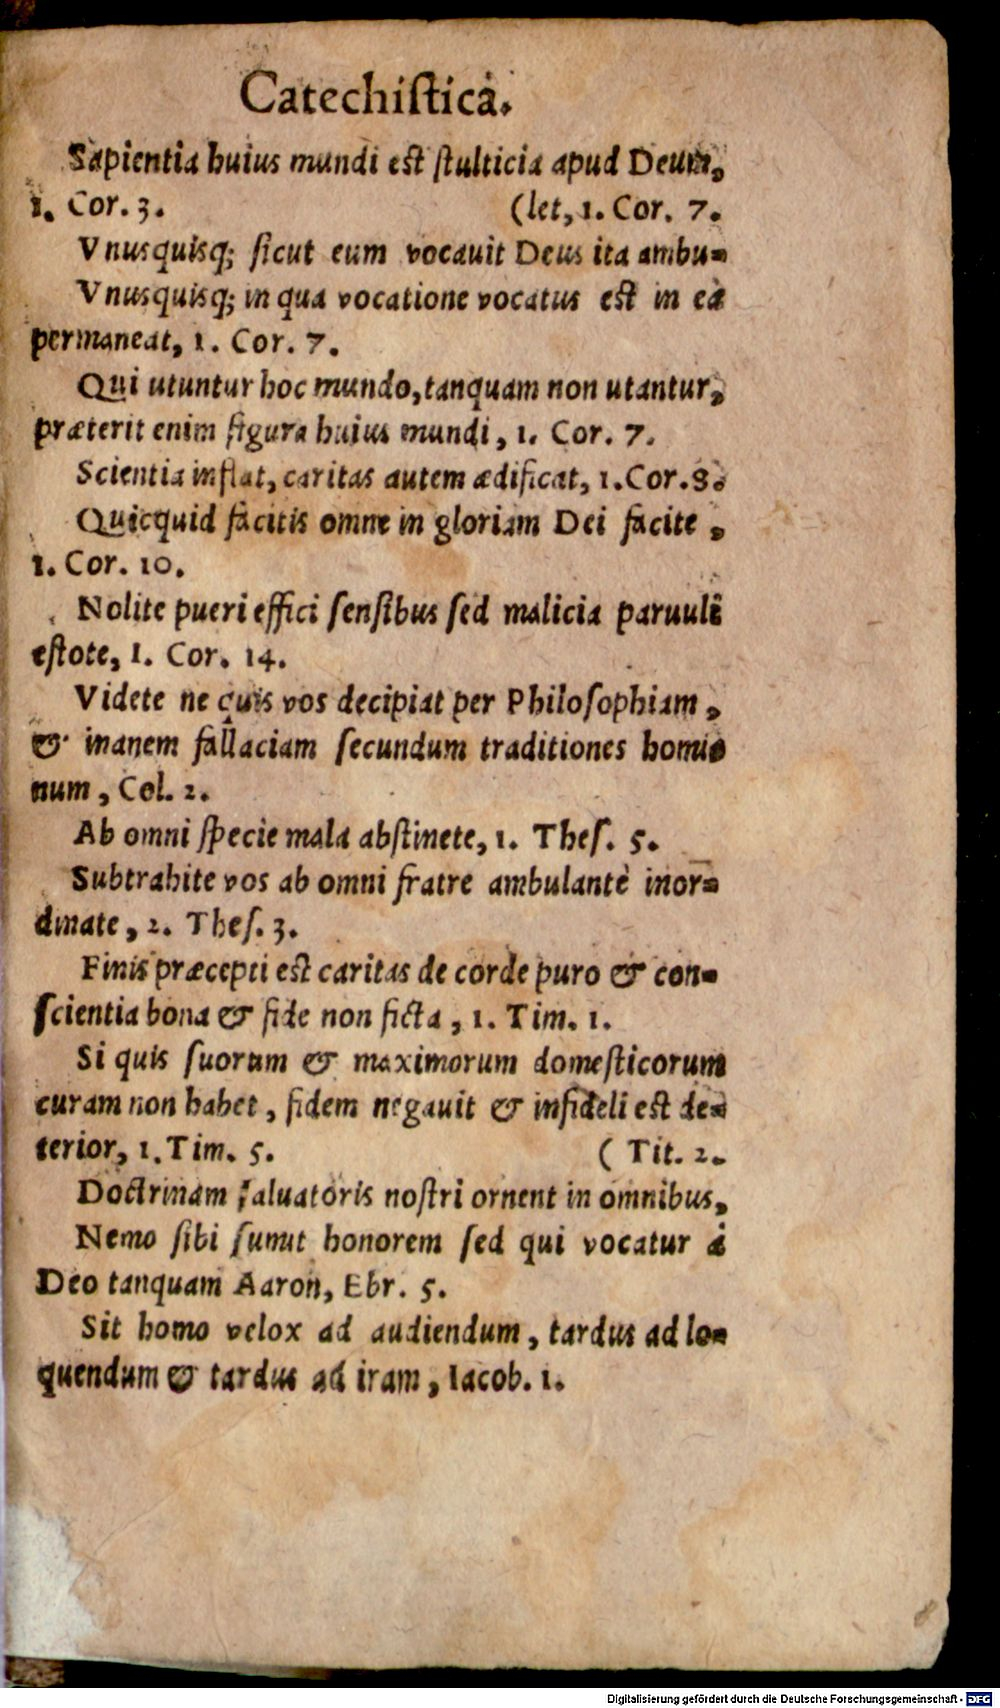 Catechisticá.
Sapientia huius mundi est stulticia apud Deum,
1. Cor. 3. (let, 1. Cor. 7.
Vnusquisq; sicut eum vocauit Deus ita ambu-
Vnusquisq; in qua vocatione vocatus est in ea
permaneat, 1. Cor. 7.
Qui utuntur hoc mundo, tanquam non utantur,
præterit enim figura huius mundi, 1. Cor. 7.
Scientia inflat, caritas autem ædificat, 1. Cor. 8.
Quicquid facitis omne in gloriam Dei facite,
1. Cor. 10.
Nolite pueri effici sensibus sed malicia paruuli
estote, 1. Cor. 14.
Videte ne quis vos decipiat per Philosophiam,
& inanem fallaciam secundum traditiones homi-
num, Col. 2.
Ab omni specie mala abstinete, 1. Thes. 5.
Subtrahite vos ab omni fratre ambulantè inor-
dinate, 2. Thes. 3.
Finis præcepti est caritas de corde puro & con-
scientia bona & fide non ficta, 1. Tim. 1.
Si quis suorum & maximorum domesticorum
curam non habet, fidem negauit & infideli est de-
terior, 1. Tim. 5. (Tit. 2.
Doctrinam saluatoris nostri ornent in omnibus,
Nemo sibi sumit honorem sed qui vocatur á
Deo tanquam Aaron, Ebr. 5.
Sit homo velox ad audiendum, tardus ad lo-
quendum & tardus ad iram, Iacob. 1.
Digitalisierung gefördert durch die Deutsche Forschungsgemeinschaft - DFG